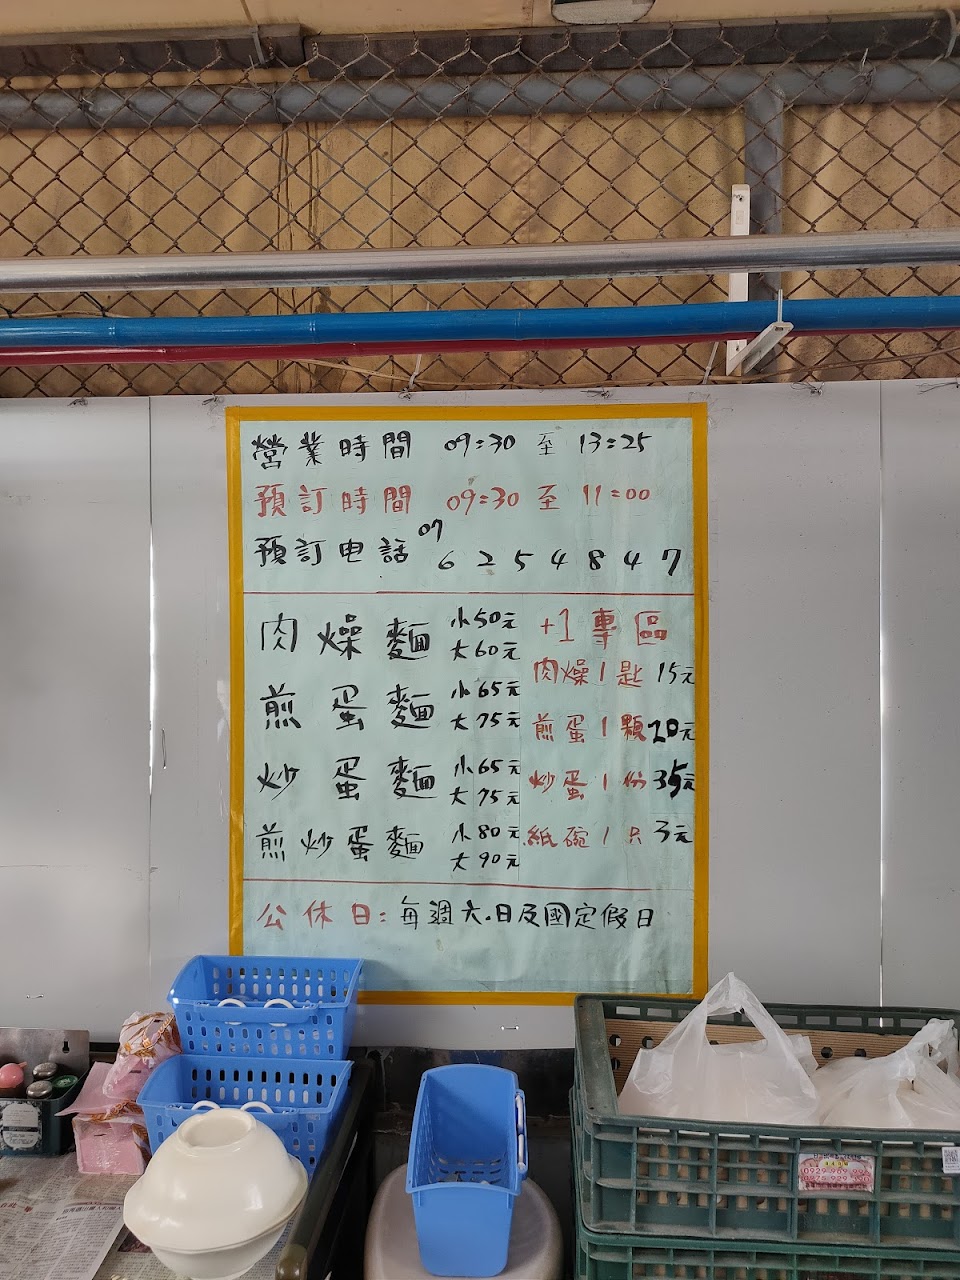 營業時間 09:30 至 13:25
預訂時間 09:30 至 11:00
預訂电話 07 6254847
肉燥麵 小50元 大60元
煎蛋麵 小65元 大75元
炒蛋麵 小65元 大75元
煎炒蛋麵 小80元 大90元
+1專區
肉燥1匙 15元
煎蛋1顆 20元
炒蛋1份 35元
紙碗1只 3元
公休日:每週六.日及國定假日